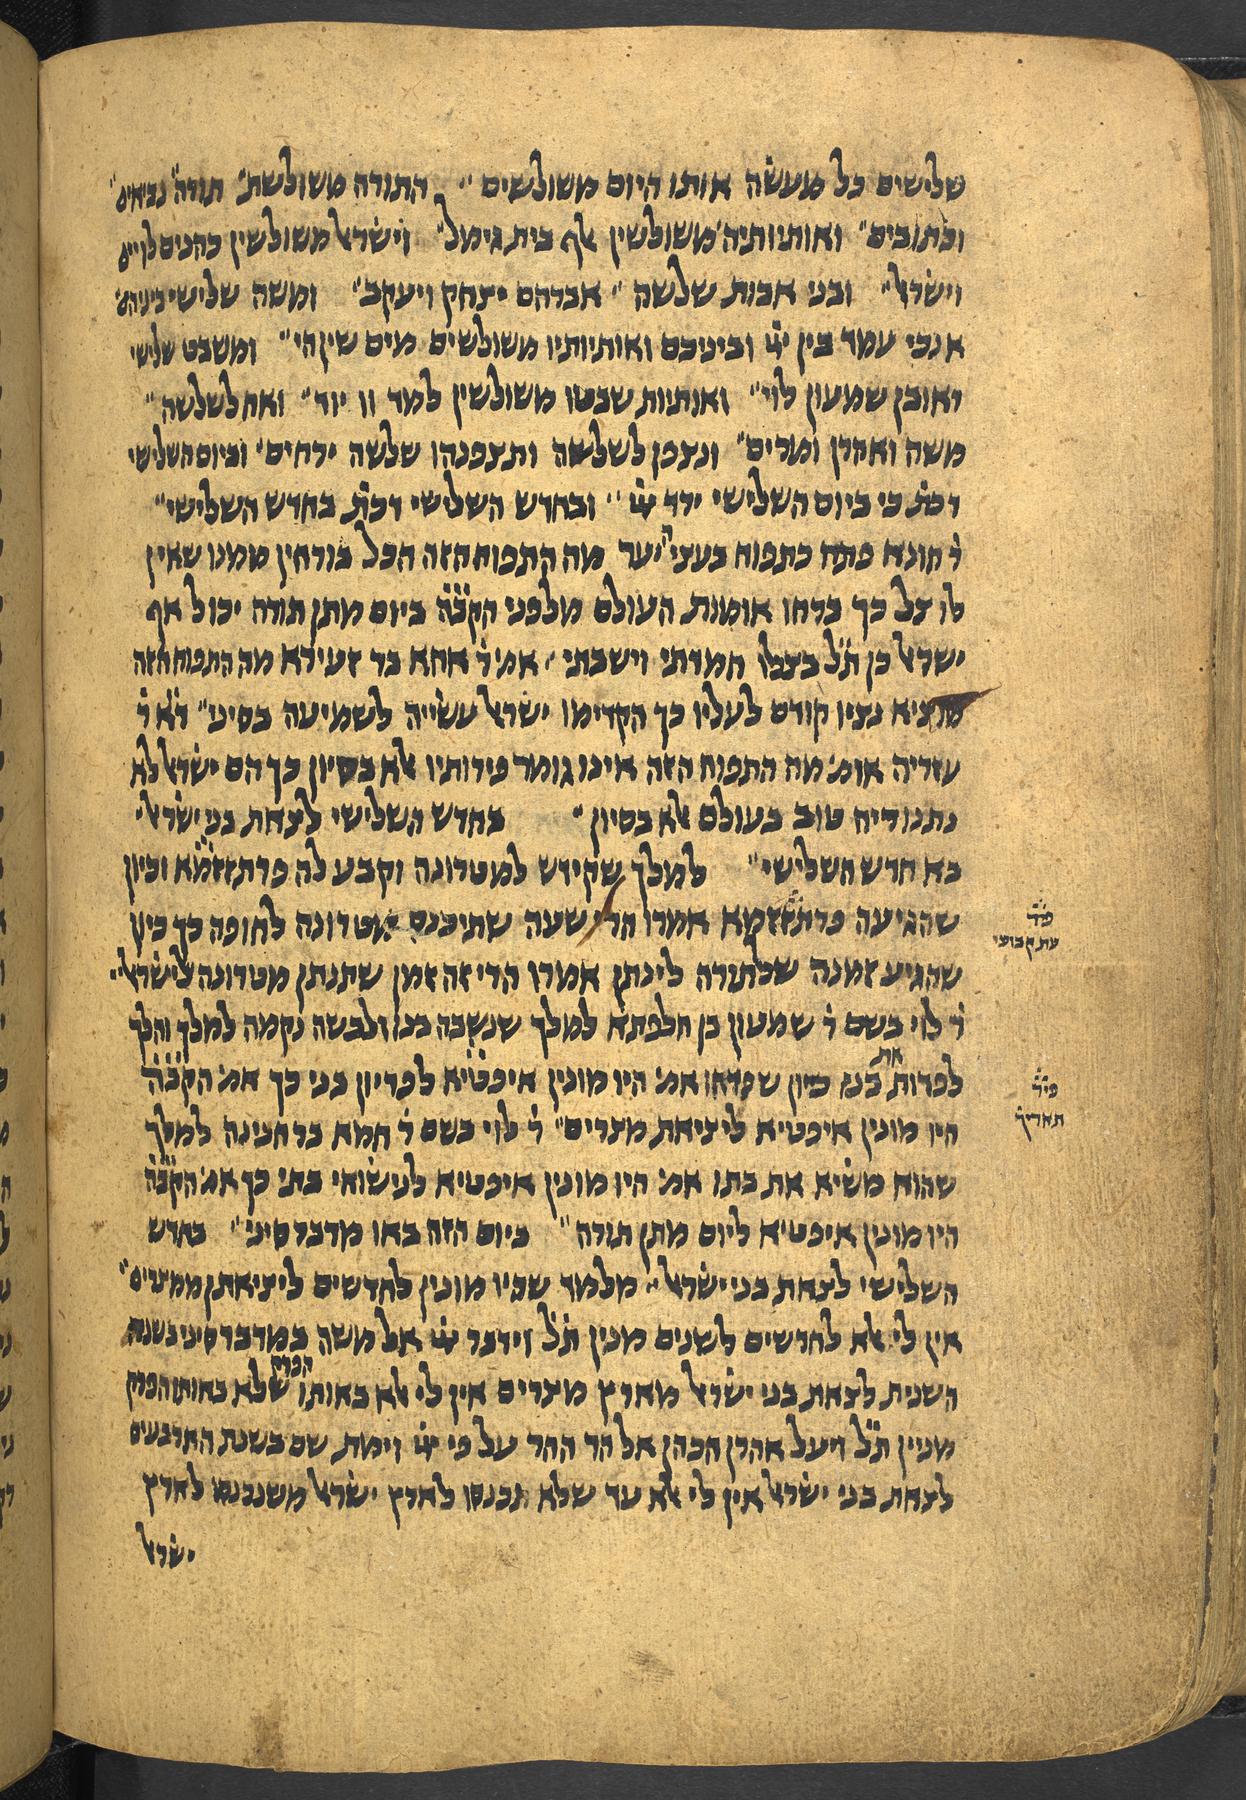 שלישים כל מעשה אותו היום משולשים״ התורה משולשת״ תורה נביאים״
וכתובים״ ואותיותיה משולשין אלף בית גימל״ וישראל משולשין כהנים לויים
וישראל״ ובני אבות שלשה״ אברהם יצחק ויעקב״ ומשה שלישי ביניהם
אנכי עמד בין יי׳ וביניכם ואותיותיו משולשים מים שין הי״ ומשבט שלישי
ראובן שמעון לוי״ ואותיות שבטו משולשין למד וו יוד״ ואח לשלשה״
משה ואהרן ומרים״ ונצפן לשלשה ותצפנהו שלשה ירחים׳ וביום השלישי
דכת׳ כי ביום השלישי ירד יי׳״ ובחדש השלישי דכת׳ בחדש השלישי״
ר׳ חונא פתח כתפוח בעצי היער מה התפוח הזה הכל בורחין ממנו שאין
לו צל כך ברחו אומות העולם מלפני הקב״ה ביום מתן תורה יכול אף
ישראל כן ת״ל בצלו חמדתי וישבתי׳ אמ׳ ר׳ אחא בר זעירא מה התפוח הזה
מוציא נציו קודם לעליו כך הקדימו ישראל עשייה לשמיעה בסיני״ ד״א ר׳
עזריה אומ׳ מה התפוח הזה אינו גומר פירותיו אלא בסיון כך הם ישראל לא
נתנו ריח טוב בעולם אלא בסיון״ בחדש השלישי לצאת בני ישראל׳
בא חדש השלישי״ למלך שקידש למטרונה וקבע לה פרתזזמא וכיון
שהגיעה פרתזזמא אמרו הרי שעה שתיכנס מטרונה לחופה כך כיון
שהגיע זמנה שלתורה לינתן אמרו הרי זה זמן שתנתן מטרונה לישראל׳
ר׳ לוי בשם ר׳ שמעון בן חלפתא למלך שנשבה בנו ולבשה נקמה למלך והלך
לפדות את בנו כיון שפדאו אמ׳ היו מונין איפטיא לפדיון בני כך אמ׳ הקב״ה
היו מונין איפטיא ליציאת מצרים״ ר׳ לוי בשם ר׳ חמא בר חנינה למלך
שהוא משיא את בתו אמ׳ היו מונין איפטיא לנישואי בתי כך אמ׳ הקב״ה
היו מונין איפטיא ליום מתן תורה״ ביום הזה באו מדבר סיני״ בחדש
השלישי לצאת בני ישראל״ מלמד שהיו מונין לחדשים ליציאתן ממצרים״
אין לי אלא לחדשים לשנים מנין ת״ל וידבר יי׳ אל משה במדבר סיני בשנה
השנית לצאת בני ישראל מארץ מצרים אין לי אלא באותו הפרק שלא באותו הפרק
מניין ת״ל ויעל אהרן הכהן אל הר ההר על פי יי׳ וימת שם בשנת הארבעים
לצאת בני ישראל אין לי אלא עד שלא נכנסו לארץ ישראל משנכנסו לארץ
ישראל
פי׳
עת קבועי
פי׳
תאריך